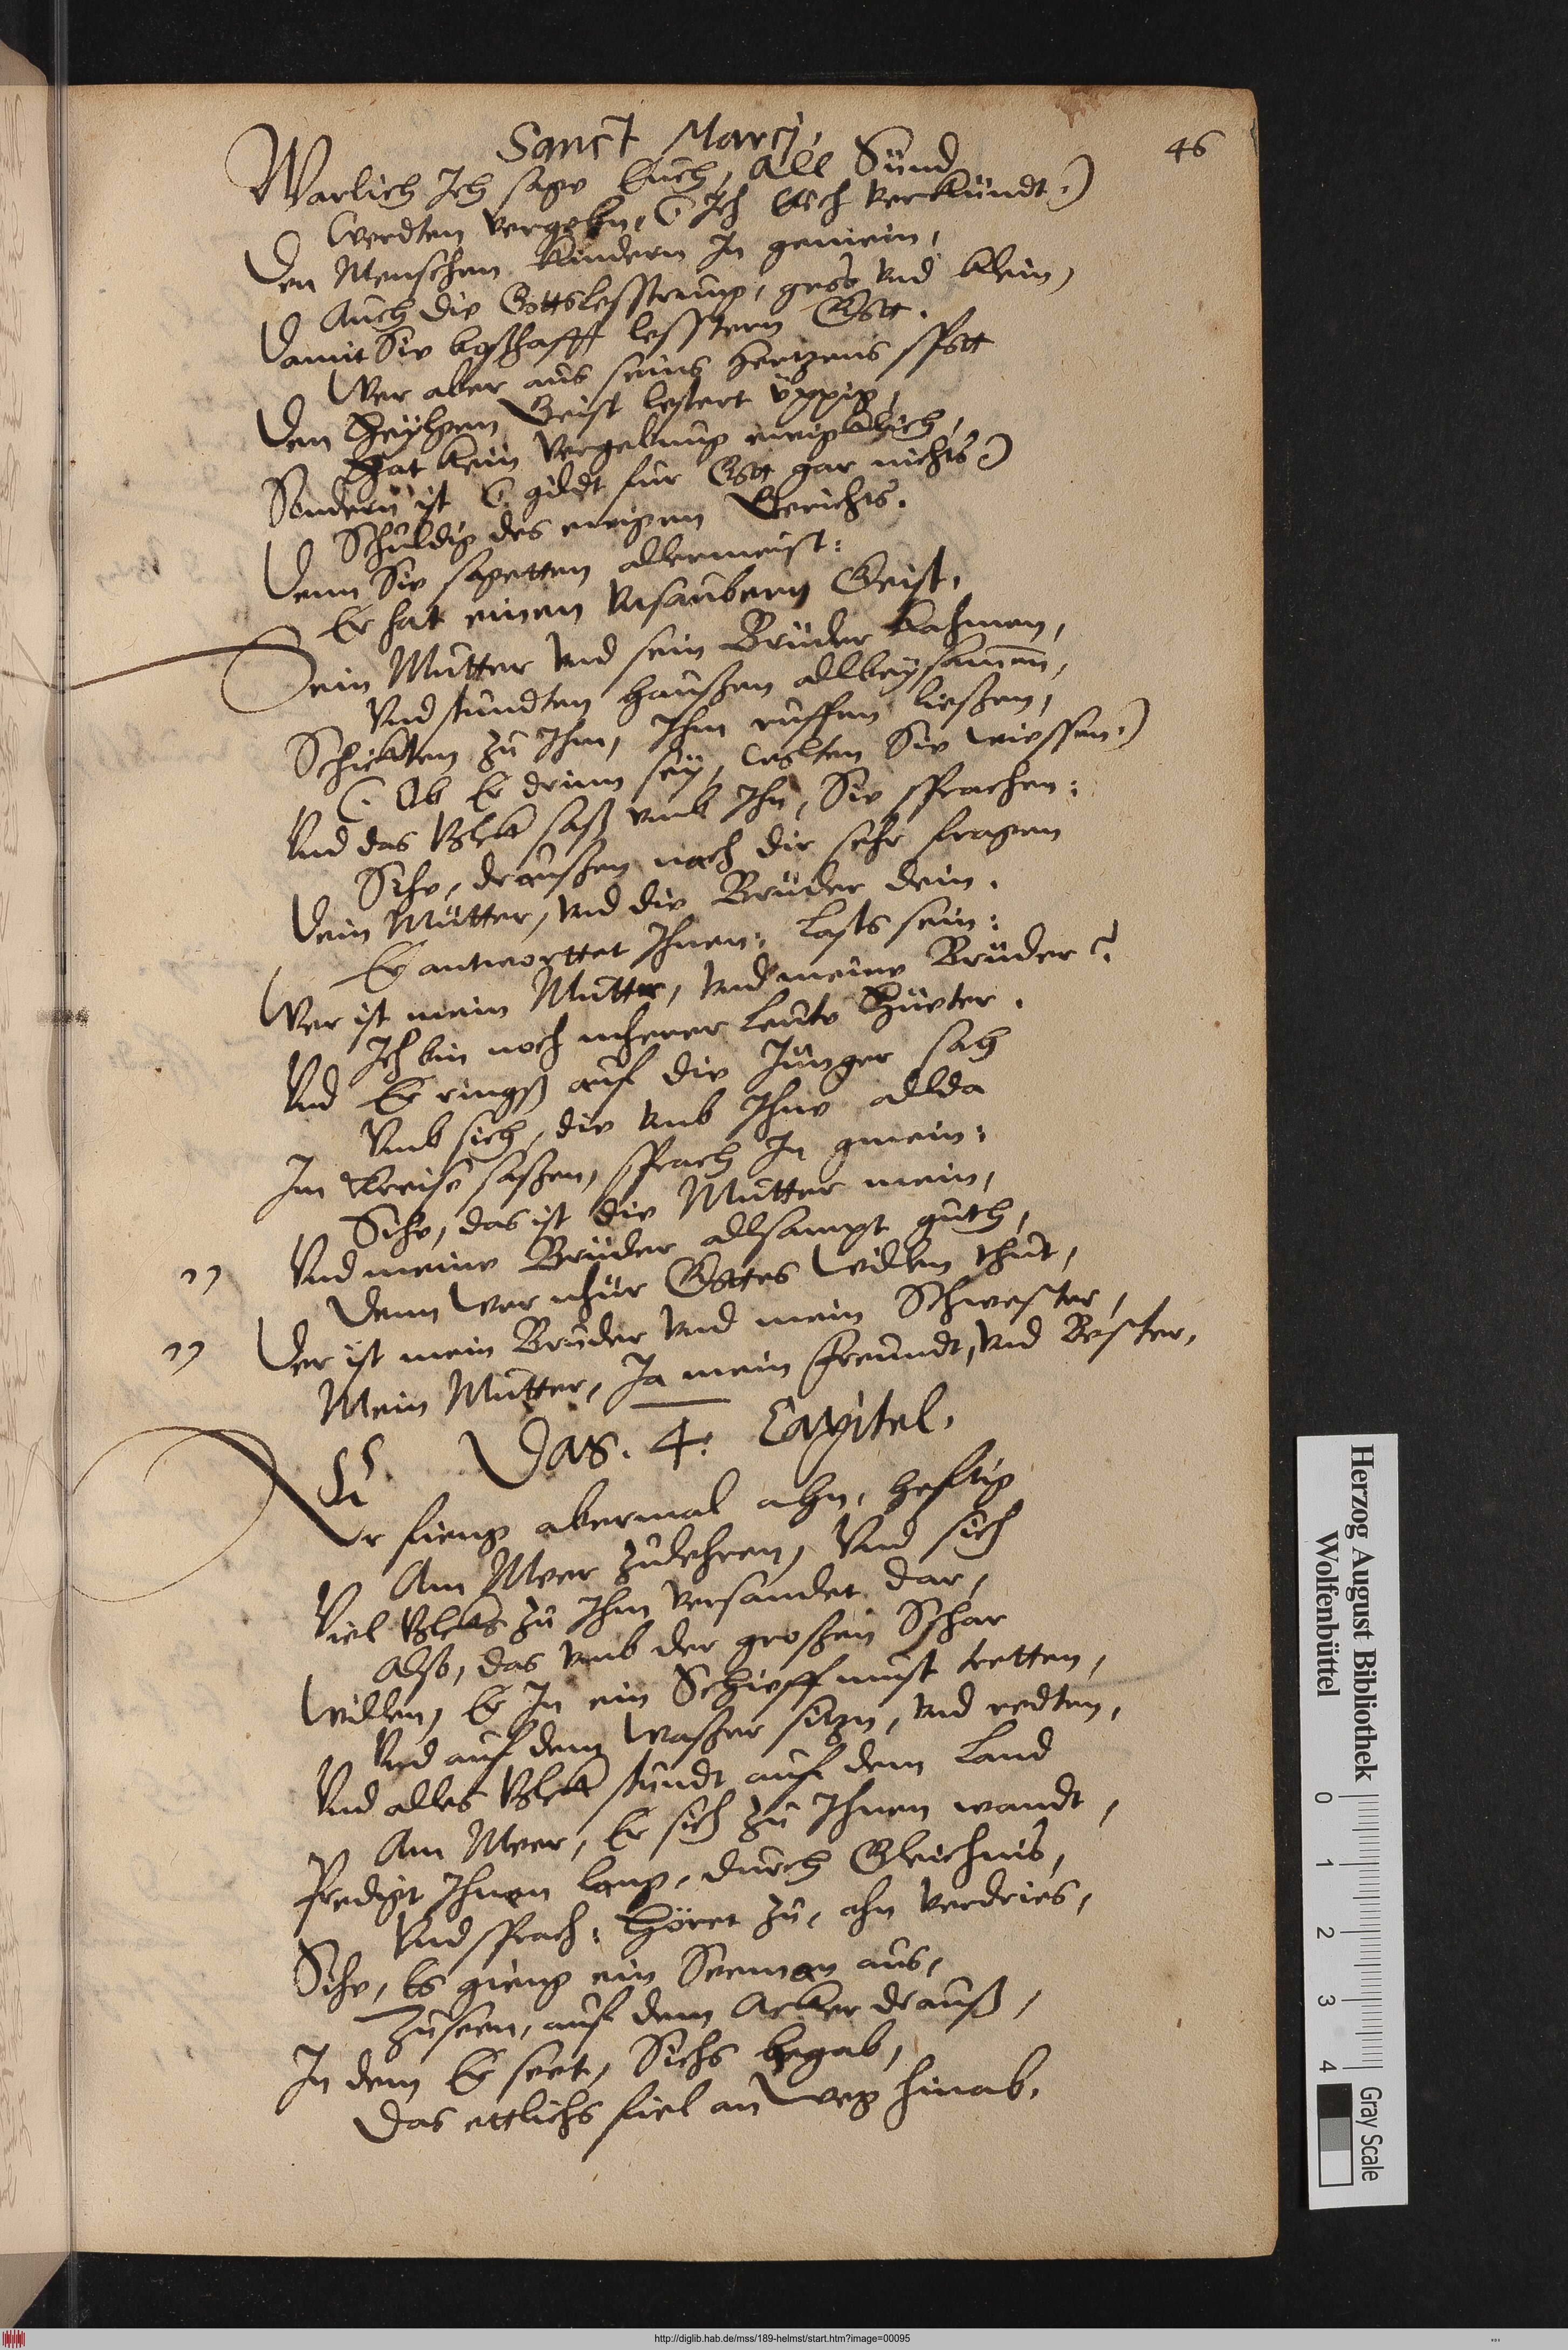 Sanct Marcj,
46
Warlich Ich sage Euch, All Sünd
Werdten vergebn, (: Ich Euch verkündt :)
Den Menschen Kindern In gemein,
Auch die Gottslesstrung, gros vnd klein,
Damit Sie boßhafft lesstern Gott.
Wer aber aus seins Hertzens spott
Den Heylgen Geist lestert üppig,
Hat kein Vergebung ewigklich,
Sondern ist (: gildt für Gott gar nichts :)
Schuldig des ewigen Gerichts.
Denn Sie sagetten allermeist:
Er hat einen Vnsaubern Geist.
Sein Mutter vnd sein Brüder kahmen,
Vnd stundten haußen allbeysamen,
Schickten zu Ihm, Ihm ruffen ließen,
(: Ob Er drinn sey, wolten Sie wiessen :)
Vnd das Volck saß vmb Ihn, Sie sprachen:
Sihe, draußen nach dir sehr fragen
Dein Mutter, vnd die Brüder dein.
Er antworttet Ihnen: Lasts sein:
Wer ist mein Mutter, vnd meine Brüder?
Ich bin noch mherer Leute Hüeter.
Vnd Er rings auf die Junger sah
Vmb sich, die vmb Ihne allda
Im Kreise saßen, sprach In gmein:
Sihe, das ist die Mutter mein,
" Vnd meine Brüder allsampt guth,
Denn wer nhur Gottes Willen thut,
" Der ist mein Bruder vnd mein Schwester,
Mein Mutter, Ja mein freundt, vnd Bester.
Das. 4. Capitel.
Er fieng abermal ahn, hefftig
Am Meer zulehren, Vnd sich
Viel Volcks zu Ihm versandet dar,
Also, das vmb der großen Schar
Willen, Er In ein Schieff must tretten,
Vnd auf dem Waßer sitzn, vnd redten,
Vnd alles Volck stundt auf dem Land
Am Meer, Er sich zu Ihnen wandt,
Predigt Ihnen lang, durch Gleichnis,
Vnd sprach: Höret zu, ahn verdries,
Sihe, Es gieng ein Seeman aus,
Zuseen, auf dem Acker drauß,
In dem Er seet, Sichs begab,
Das ettlichs fiel an Weg hinab.
Herzog August Bibliothek
Wolfenbüttel
0 1 2 3 4
Gray Scale
http://diglib.hab.de/mss/189-helmst/start.htm?image=00095